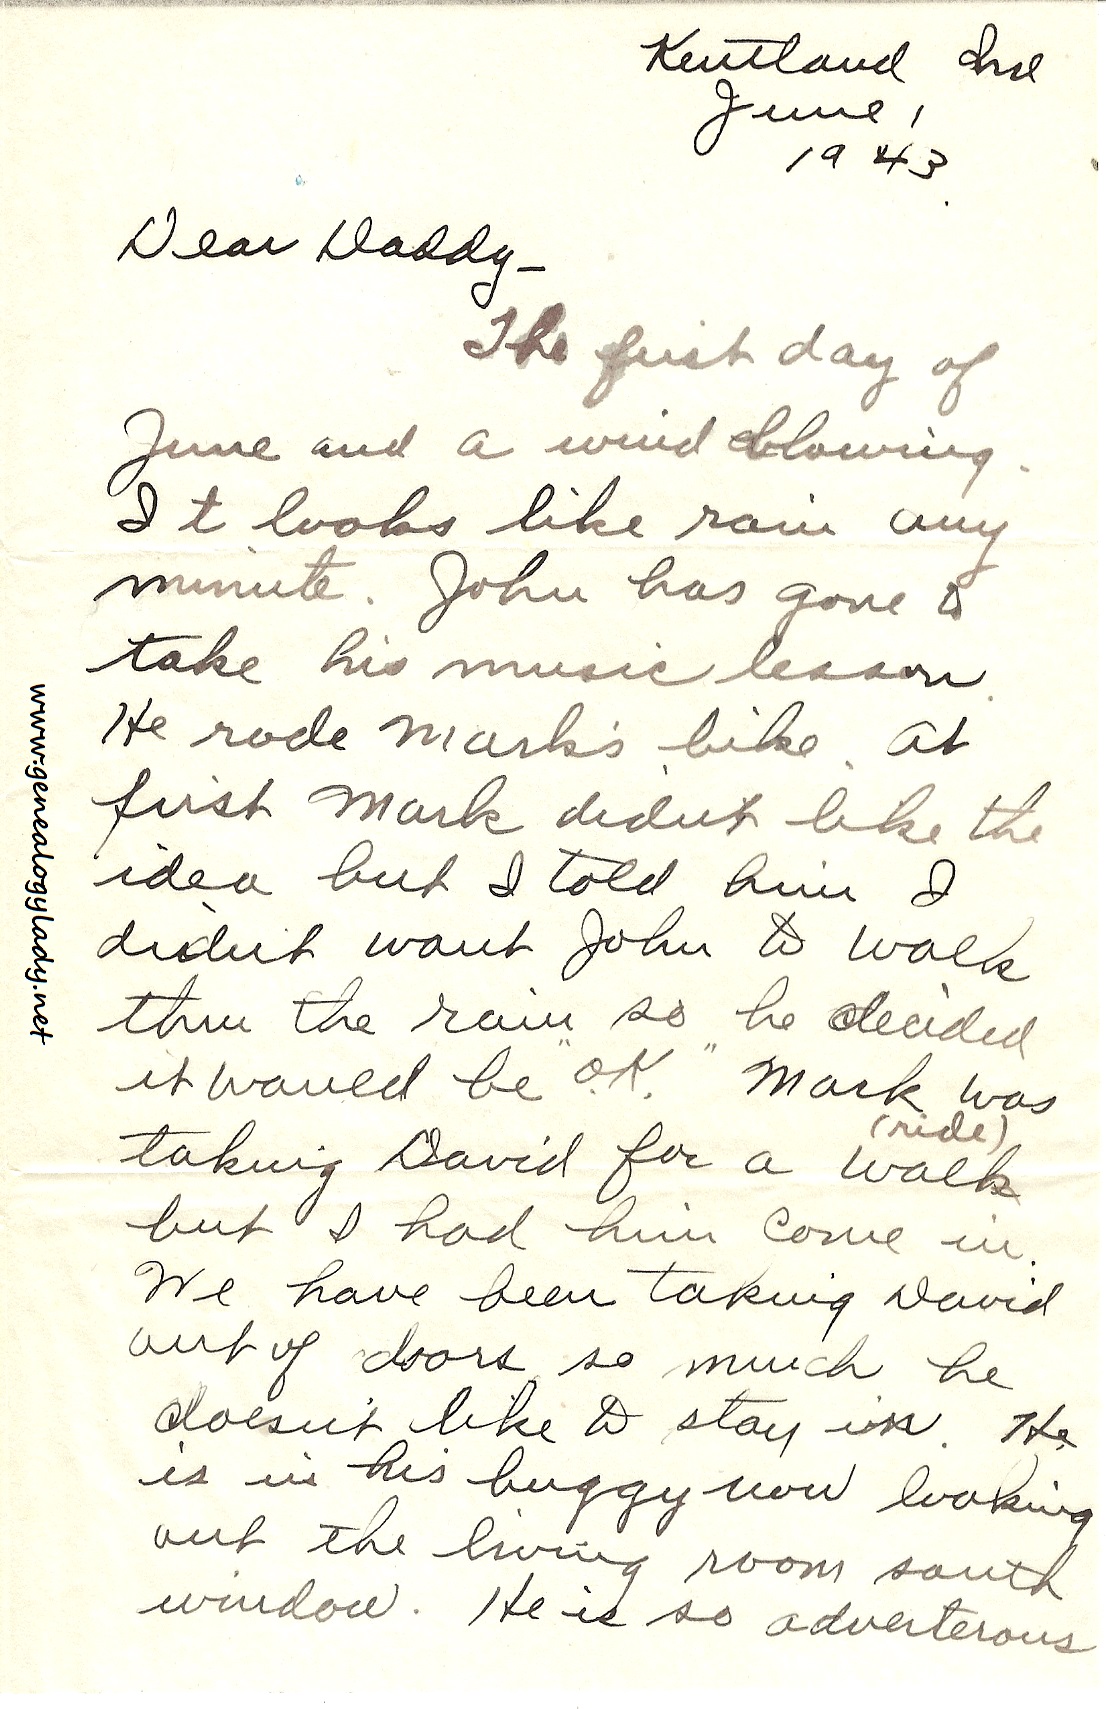 Kentland Ind
June 1
1943.
Dear Daddy—
The first day of
June and a wind blowing.
It looks like rain any
minute. John has gone to
take his music lesson.
He rode Mark's bike. At
first Mark didn't like the
idea but I told him I
didn't want John to walk
thru the rain so he decided
it would be "O.K." Mark was
(ride)
taking David for a walk
but I had him come in.
We have been taking David
out of doors so much he
doesn't like to stay in. He
is in his buggy now looking
out the living room south
window. He is so adverterous
www.genealogylady.net